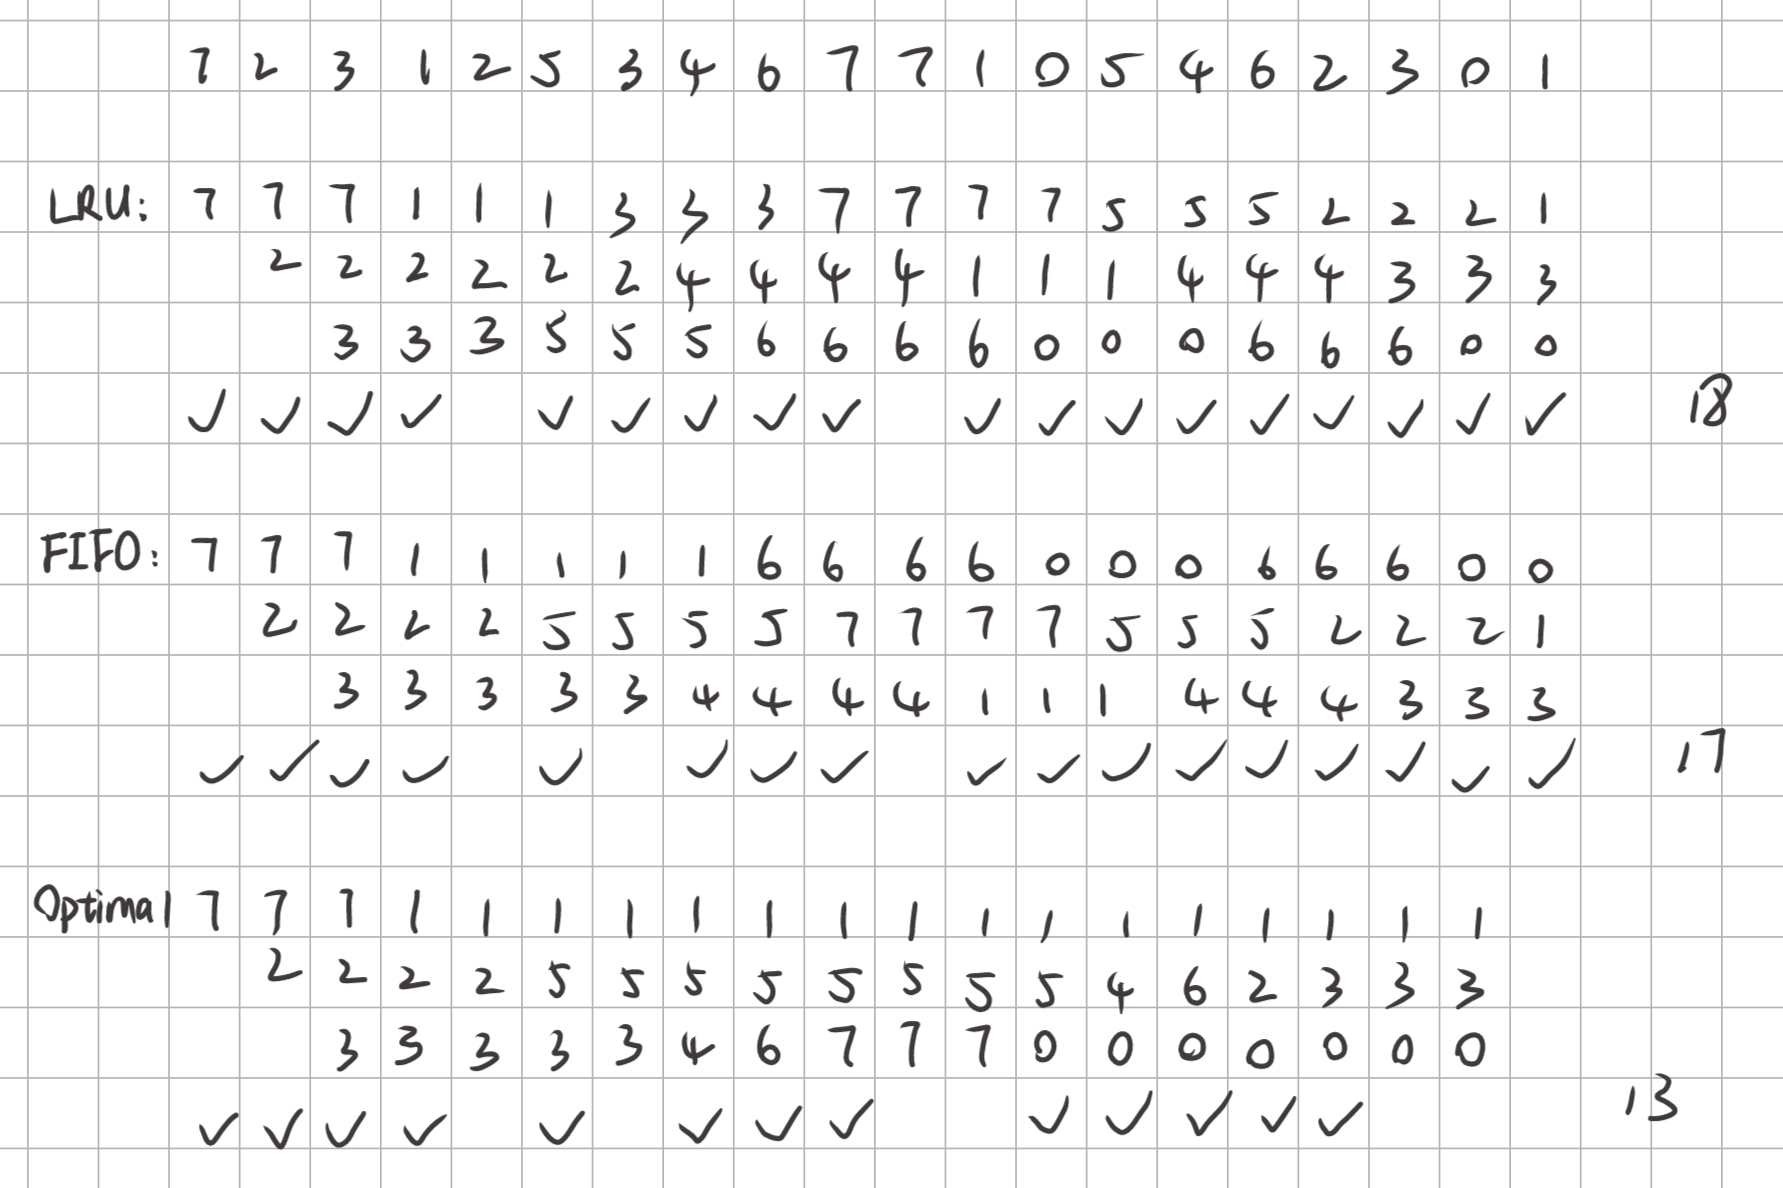 7 2 3 1 2 5 3 4 6 7 7 1 0 5 4 6 2 3 0 1
LRU: 7 7 7 1 1 1 3 3 3 7 7 7 7 5 5 5 2 2 2 1
2 2 2 2 2 2 4 4 4 4 1 1 1 4 4 4 3 3 3
3 3 3 5 5 5 6 6 6 6 0 0 0 6 6 6 0 0
✓ ✓ ✓ ✓ ✓ ✓ ✓ ✓ ✓ ✓ ✓ ✓ ✓ ✓ ✓ ✓ ✓ ✓ 18
FIFO: 7 7 7 1 1 1 1 1 6 6 6 6 0 0 0 6 6 6 0 0
2 2 2 2 5 5 5 5 7 7 7 7 5 5 5 2 2 2 1
3 3 3 3 3 4 4 4 4 1 1 1 4 4 4 3 3 3
✓ ✓ ✓ ✓ ✓ ✓ ✓ ✓ ✓ ✓ ✓ ✓ ✓ ✓ ✓ ✓ ✓ 17
Optimal 7 7 7 1 1 1 1 1 1 1 1 1 1 1 1 1 1 1 1
2 2 2 2 5 5 5 5 5 5 5 5 4 6 2 3 3 3
3 3 3 3 3 4 6 7 7 7 0 0 0 0 0 0 0
✓ ✓ ✓ ✓ ✓ ✓ ✓ ✓ ✓ ✓ ✓ ✓ ✓ 13